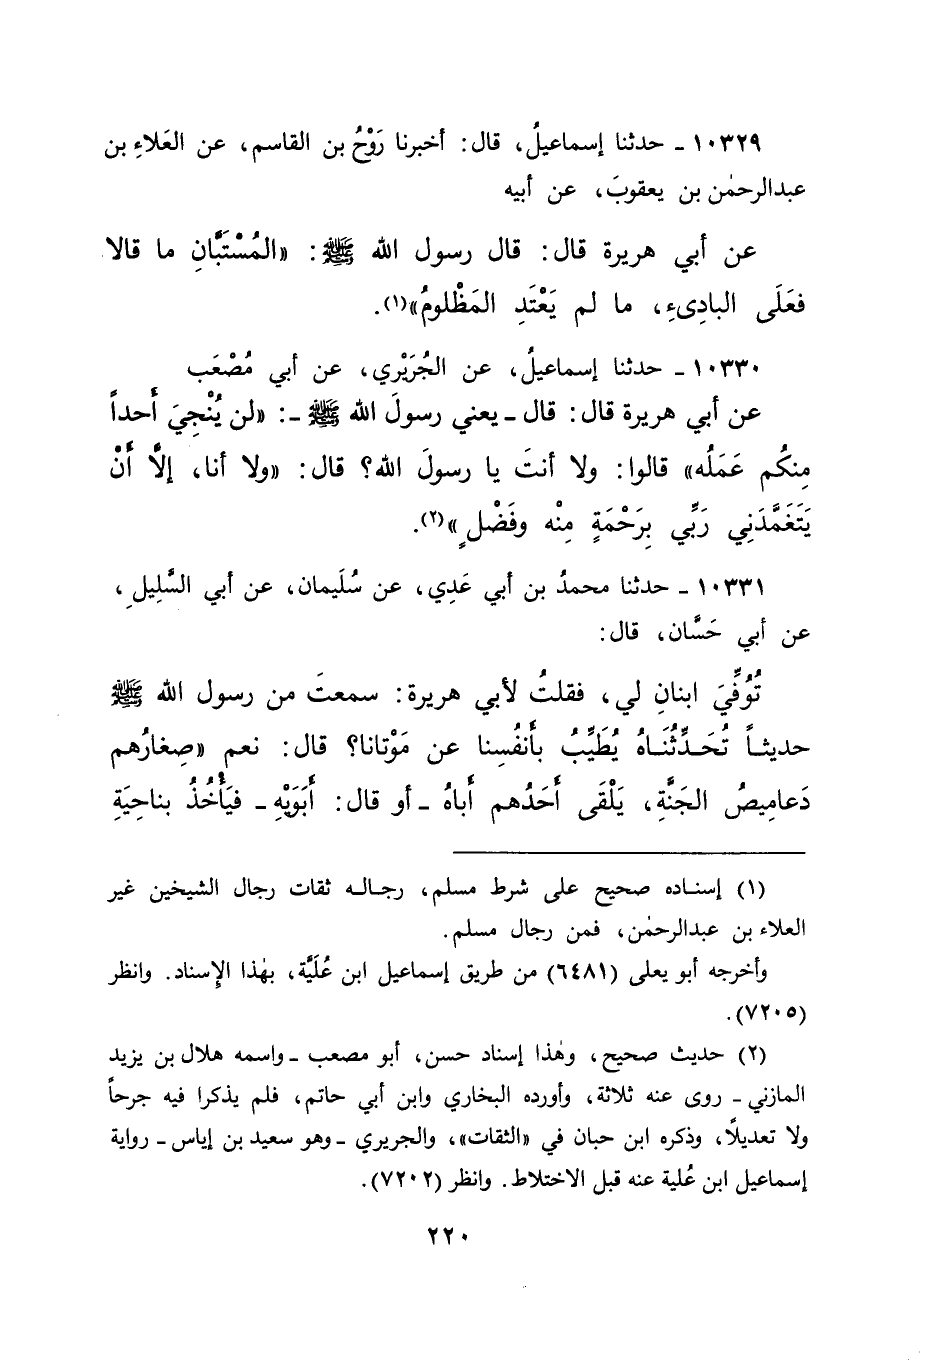 ١٠٣٢٩ ـ حدثنا إسماعيلُ، قال: أخبرنا رَوْحُ بن القاسم، عن العَلاءِ بن
عبدالرحمٰن بن يعقوبَ، عن أبيه
عن أبي هريرة قال: قال رسول الله ﷺ: «المُسْتَبَّانِ ما قالا
فعَلَى البادِىءِ، ما لم يَعْتَدِ المَظْلومُ»(١).
١٠٣٣٠ ـ حدثنا إسماعيلُ، عن الجُرَيْري، عن أبي مُصْعَب
عن أبي هريرة قال: قال ـ يعني رسولَ الله ﷺ ـ: «لن يُنْجِيَ أَحداً
مِنكُم عَمَلُه» قالوا: ولا أنتَ يا رسولَ الله؟ قال: «ولا أنا، إلَّا أَنْ
يَتَغَمَّدَنِي رَبِّي بِرَحْمَةٍ مِنْه وفَضْلٍ»(٢).
١٠٣٣١ ـ حدثنا محمدُ بن أبي عَدِي، عن سُلَيمان، عن أبي السَّلِيلِ،
عن أبي حَسَّان، قال:
تُوُفِّيَ ابنانِ لي، فقلتُ لأبي هريرة: سمعتَ من رسول الله ﷺ
حديثـاً تُحَـدِّثُنَـاهُ يُطَيِّبُ بأَنفُسِنا عن مَوْتانا؟ قال: نعم «صِغارُهم
دَعامِيصُ الجَنَّةِ، يَلْقَى أَحَدُهم أَباهُ ـ أو قال: أَبَوَيْهِ ـ فيَأْخُذُ بناحِيَةِ
(١) إسنـاده صحيح على شرط مسلم، رجـالـه ثقات رجال الشيخين غير
العلاء بن عبدالرحمٰن، فمن رجال مسلم.
وأخرجه أبو يعلى (٦٤٨١) من طريق إسماعيل ابن عُلَيَّة، بهٰذا الإسناد. وانظر
(٧٢٠٥).
(٢) حديث صحيح، وهٰذا إسناد حسن، أبو مصعب ـ واسمه هلال بن يزيد
المازني ـ روى عنه ثلاثة، وأورده البخاري وابن أبي حاتم، فلم يذكرا فيه جرحاً
ولا تعديلًا، وذكره ابن حبان في «الثقات»، والجريري ـ وهو سعيد بن إياس ـ رواية
إسماعيل ابن عُلية عنه قبل الاختلاط. وانظر (٧٢٠٢).
٢٢٠